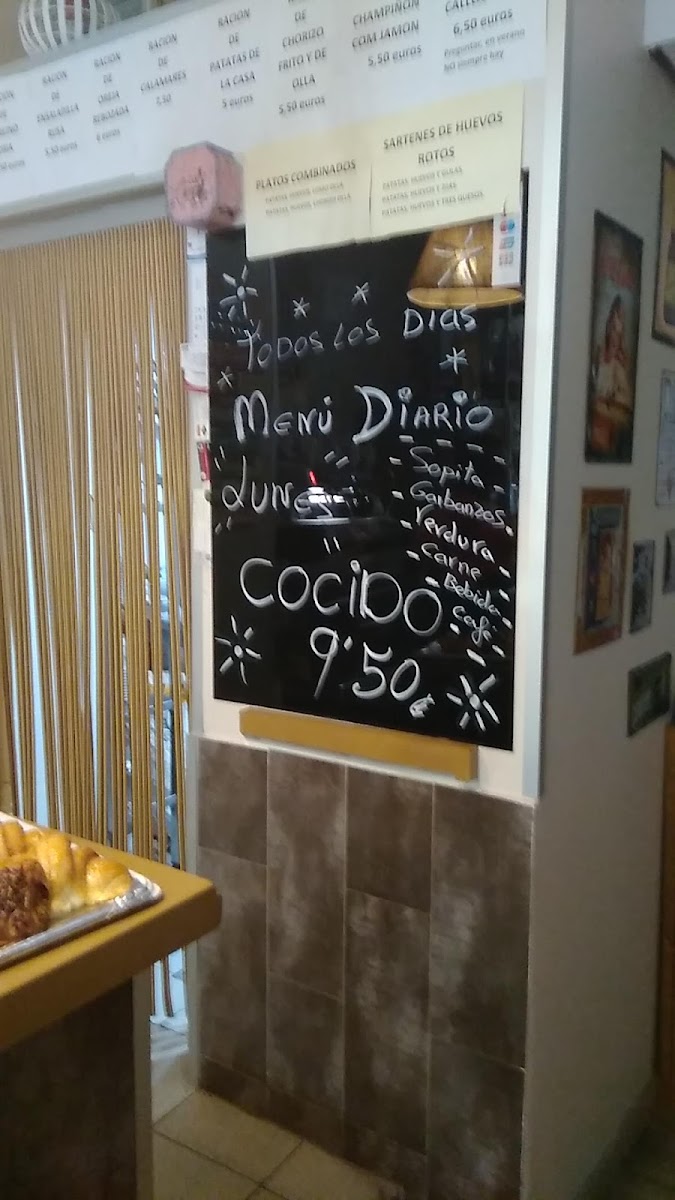 RACION
DE
ENSALADILLA
RUSA
RACION
DE
OREJA
REBOZADA
6 euros
RACION
DE
CALAMARES
7,50
RACION
DE
PATATAS DE
LA CASA
5 euros
DE
CHORIZO
FRITO Y DE
OLLA
5,50 euros
CHAMPIÑON
COM JAMON
5,50 euros
6,50 euros
Preguntar, en verano
no siempre hay
PLATOS COMBINADOS
SARTENES DE HUEVOS
ROTOS
PATATAS, HUEVOS Y GULAS
PATATAS, HUEVOS Y TRES QUESOS
TODOS LOS DIAS
MENÚ DIARIO
LUNES
- Sopita -
- Garbanzos -
- Verdura -
- Carne -
- Bebida -
- Café -
COCIDO
9'50